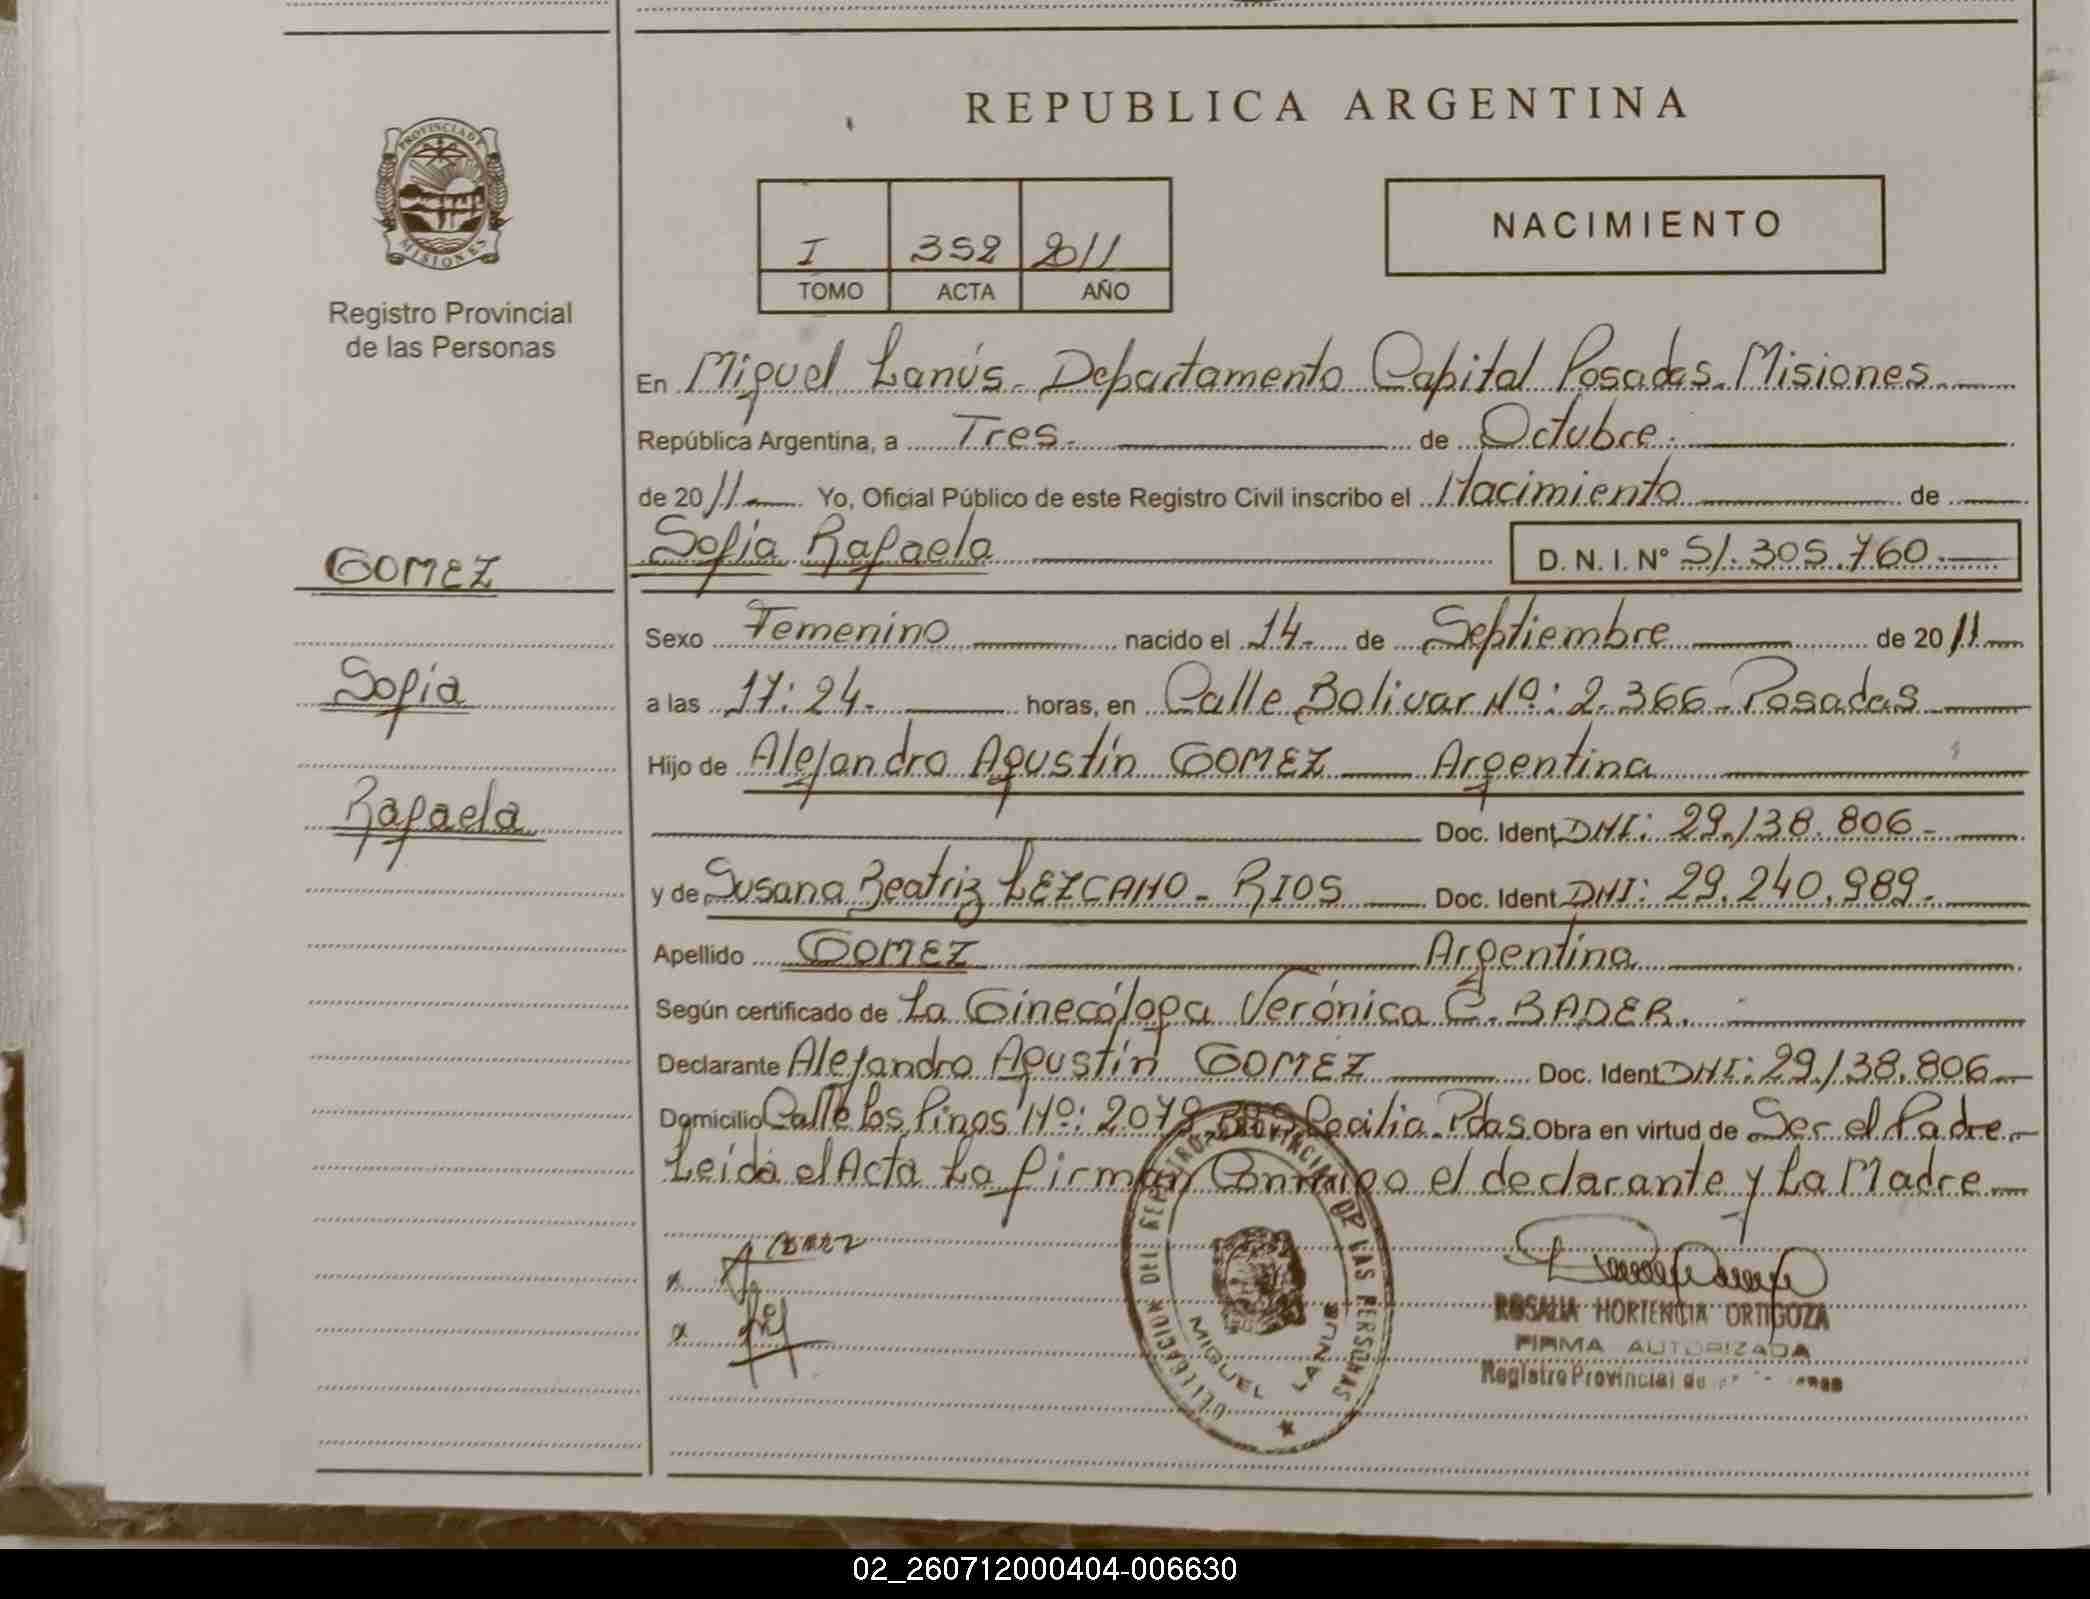 REPUBLICA ARGENTINA
PROVINCIA DE
MISIONES
Registro Provincial
de las Personas
NACIMIENTO
I 352 2011
TOMO ACTA AÑO
En Miguel Lanús - Departamento Capital Posadas. Misiones.
República Argentina, a Tres. de Octubre.
de 2011 Yo, Oficial Público de este Registro Civil inscribo el Nacimiento de
GOMEZ
Sofía Rafaela D. N. I. Nº 51.305.760.-
Sexo Femenino nacido el 14. de Septiembre de 2011
Sofía
a las 17:24. horas, en Calle Bolivar Nº: 2.366 - Posadas
Hijo de Alejandro Agustín GOMEZ Argentina
Rafaela
Doc. Ident DNI: 29.138.806.-
y de Susana Beatriz LEZCANO - RIOS Doc. Ident DNI: 29.240.989.-
Apellido GOMEZ Argentina
Según certificado de La Ginecóloga Verónica C. BADER.
Declarante Alejandro Agustín GOMEZ Doc. Ident DNI: 29.138.806
Domicilio Calle Los Pinos Nº: 2079 Cecilia. Pdas. Obra en virtud de Ser el Padre.-
Leída el Acta La firman Conmigo el declarante y La Madre
x GOMEZ
x
DELEGACION DEL REGISTRO PROVINCIAL DE LAS PERSONAS
MIGUEL LANUS
ROSALIA HORTENCIA ORTIGOZA
FIRMA AUTORIZADA
Registro Provincial de
02_260712000404-006630